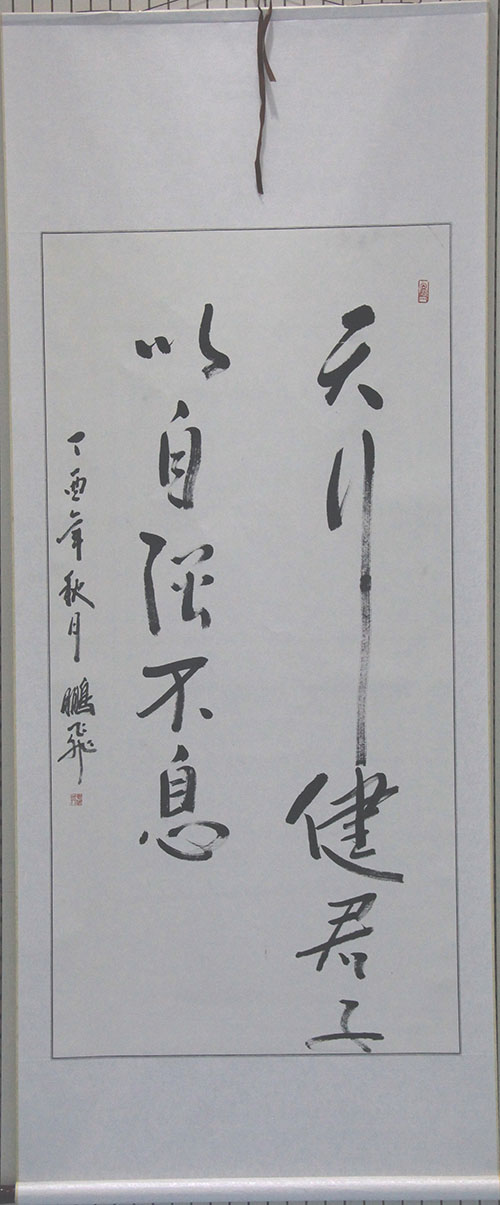 天行健君子
以自强不息
丁酉年秋月 鵬飛